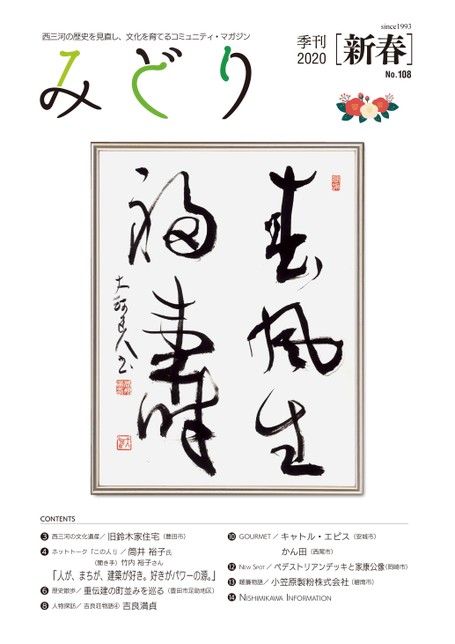 since1993
西三河の歴史を見直し、文化を育てるコミュニティ・マガジン
みどり
季刊
2020
[新春]
No.108
春風生
福事
CONTENTS
3 西三河の文化遺産／旧鈴木家住宅（豊田市）
4 ホットトーク「この人!」／筒井 裕子氏
（聞き手）竹内 裕子さん
「人が、まちが、建築が好き。好きがパワーの源。」
6 歴史散歩／重伝建の町並みを巡る（豊田市足助地区）
8 人物探訪／吉良荘物語④ 吉良満貞
10 GOURMET／キャトル・エピス（安城市）
かん田（西尾市）
12 New Spot／ペデストリアンデッキと家康公像（岡崎市）
13 暖簾物語／小笠原製粉株式会社（碧南市）
14 NISHIMIKAWA INFORMATION